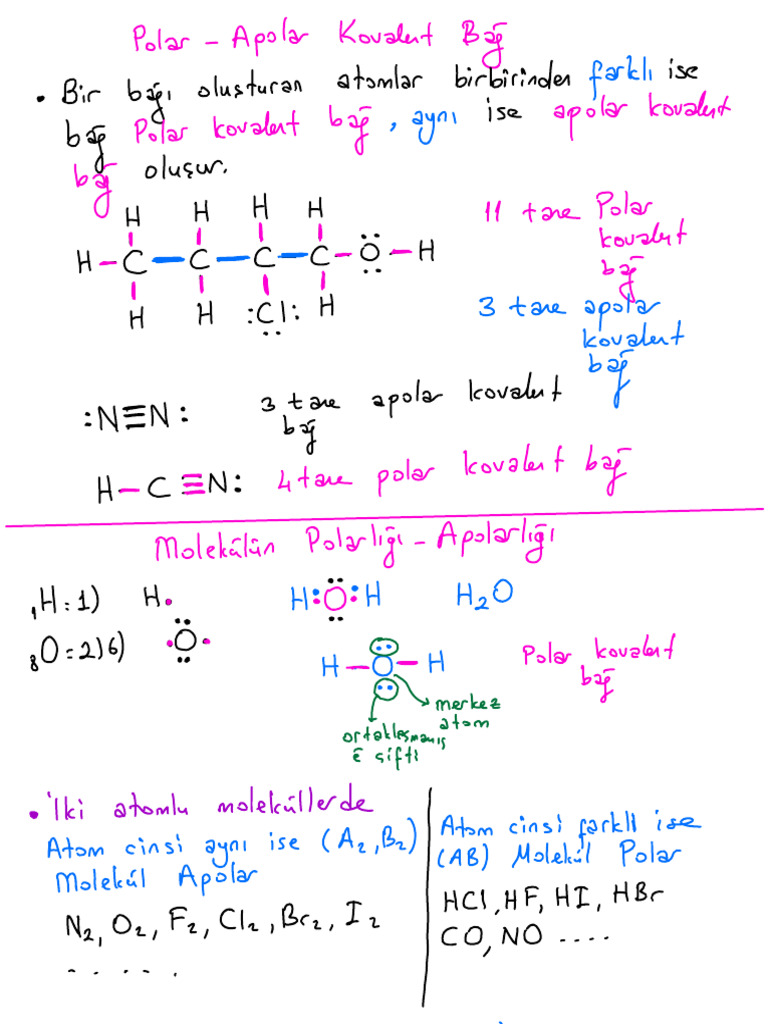 Polar - Apolar Kovalent Bağ
• Bir bağı oluşturan atomlar birbirinden farklı ise
bağ Polar kovalent bağ, aynı ise apolar kovalent
bağ oluşur.
H H H H
H-C-C-C-C-O-H
H H :Cl: H
11 tane Polar
kovalent
bağ
3 tane apolar
kovalent
bağ
:N≡N: 3 tane apolar kovalent
bağ
H-C≡N: 4 tane polar kovalent bağ
Molekülün Polarlığı - Apolarlığı
₁H:1) H. H:O:H H₂O
₈O=2)6) O
H-O-H
Polar kovalent
bağ
merkez
atom
ortaklaşmamış
e⁻ çifti
• İki atomlu moleküllerde
Atom cinsi aynı ise (A₂,B₂)
Molekül Apolar
N₂, O₂, F₂, Cl₂, Br₂, I₂
......
Atom cinsi farklı ise
(AB) Molekül Polar
HCl, HF, HI, HBr
CO, NO ....